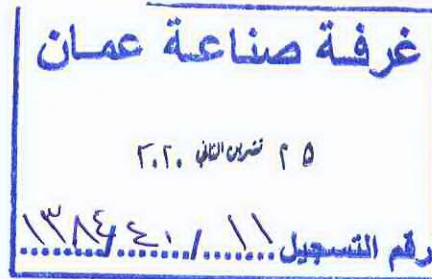 غرفة صناعة عمان
٢٥ تشرين الثاني ٢٠٢٠
رقم التسجيل ١١/٤٠١/١٣٨٤